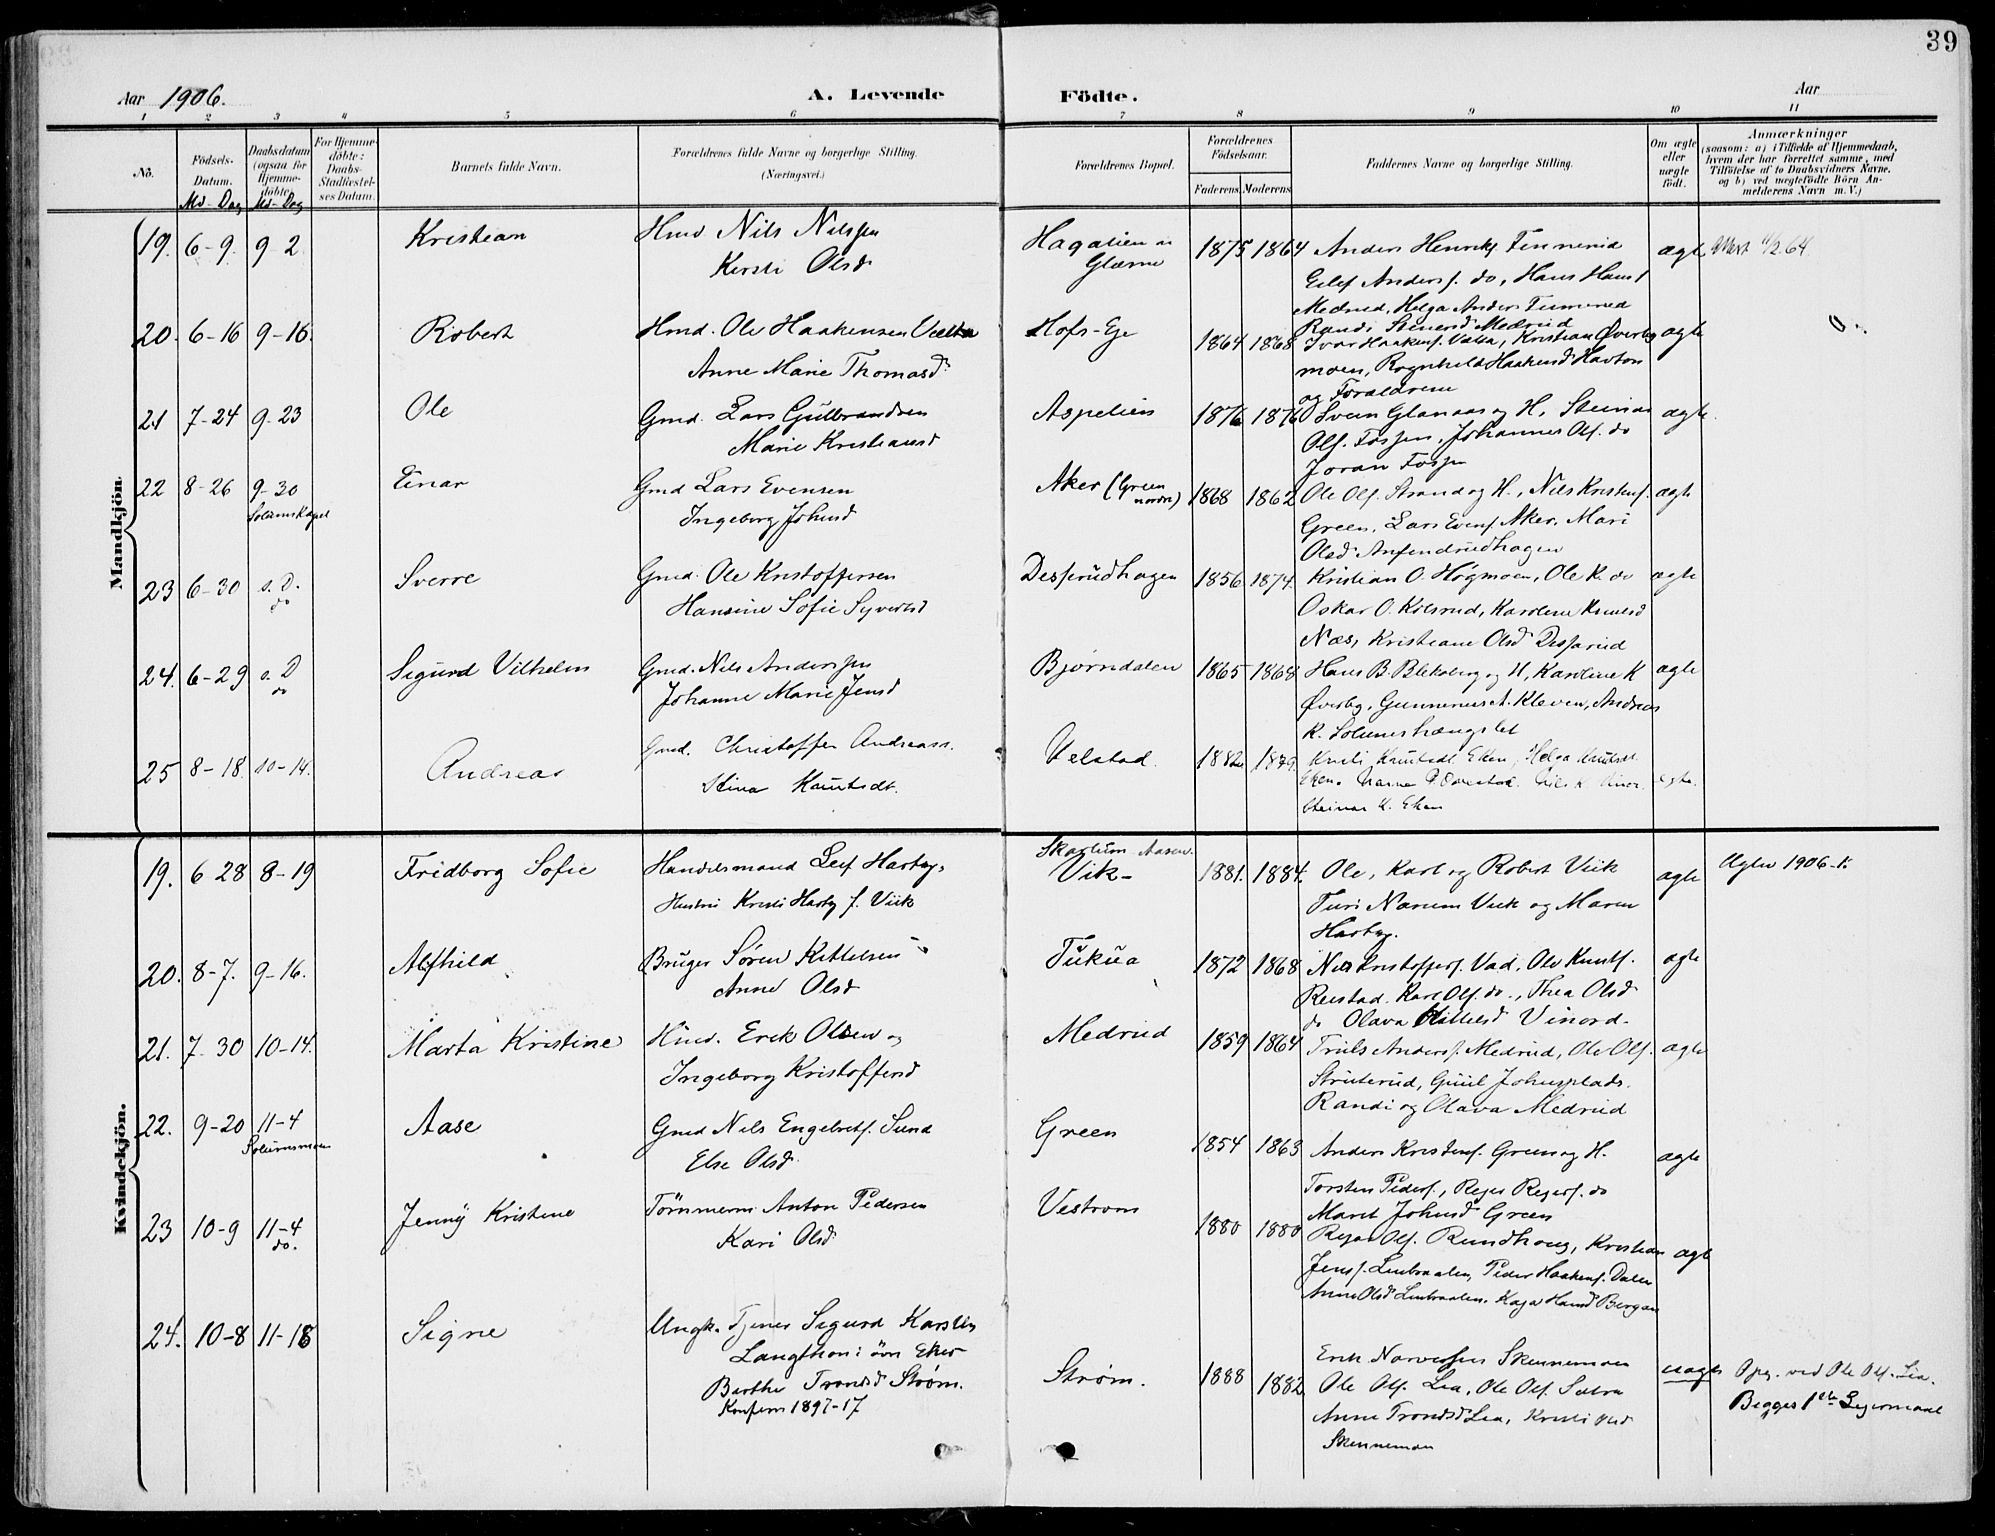 39
Aar 1906.
A. Levende Födte.
Aar
1 2 3 4 5 6 7 8 9 10 11
No.
Födsels-Datum.
Md - Dag
Daabsdatum (ogsaa for Hjemme-döbte.
Md - Dag
For Hjemme-döbte: Daabs-Stadfæstel-ses Datum.
Barnets fulde Navn.
Forældrenes fulde Navne og borgerlige Stilling.
(Næringsvei.)
Forældrenes Bopæl.
Forældrenes Födselsaar.
Faderens Moderens
Faddernes Navne og borgerlige Stilling.
Om ægte eller uægte födt.
Anmærkninger
(saasom: a) i Tilfælde af Hjemmedaab, hvem der har forrettet samme, med Tilföielse af to Daabsvidners Navne, og b) ved uægtefödte Börn An-melderens Navn m. V.)
Mandkjön.
19. 6-9. 9-2 Kristian Hmd Nils Nilssen
Kersti Olsd
Hagalien
1875 1864 Anders Henriks. Finnerud
Eilef Anders s. do, Hans Hans s
Medrud, Helga Anders Finnerud
Randi Medrud
ægte Attest 11/2 64.
20. 6-16 9-16. Robert Hmd. Ole Haakensen
Anne Marie Thomasd.
Hofs-Eje
1864 1868 Ivar Haakens. Kristian Øverby
moen, Rognhild Haakensd
og Forældrene
ægte
21 7-24 9-23 Ole Gmd. Lars Gulbrandsen
Marie Kristiansd
Aspelien
1876 1876 Svein Glanaas og H. Steinar
Ols. Fossen, Johannes Ols. do
Joran Fossen
ægte
22 8-26 9-30 Einar Gmd Lars Evensen
Solumskapel
Ingeborg Johnsd
Aker (Green nordre)
1868 1862 Ole Ols. Strand og H., Nils Kristens.
Green, Lars Evens. Aker, Mari
Olsd Anfendrudhagen
ægte
23 6-30 s. D. Sverre Gmd. Ole Kristoffersen
do
Hansine Sofie Syvertsd
Desserudhagen
1856 1874. Kristian O. Høgmoen, Ole K. do
Oskar O. Kolsrud, Karoline Knutsd
Næs, Kristiane Olsd Desserud
ægte
24. 6-29 s. D Sigurd Vilhelm Gmd. Nils Anderssen
do
Johanne Marie Jensd
Bjørndalen
1865 1868 Hans B. Blekeberg og H, Karoline K
Øverby, Gunnerius A. Kleven, Andreas
K. Solumshængslet
ægte
25 8-18. 10-14. Andreas Gmd. Christoffer Andreass.
Stina Knutsdt.
Velstad.
1882 1879. Knutsdt Eken, Helga Knutsdt.
Eken,
Steinar K. Eken
ægte.
Kvindekjön.
19. 6 28 8-19 Fridborg Sofie Handelsmand Leif Harby,
Hustru Kristi Harby f. Viik
Vik-
1881. 1884. Ole, Karl og Robert Viik
Turi Narum Viik og Maren
Harby.
ægte
20. 8-7. 9-16. Alfhild Bruger Søren Kittelsen
Anne Olsd
Tukua
1872 1868 Nils Kristoffers. Vad, Ole Knuts.
Reistad. Karl Ols. do., Thea Olsd
do Olava Kittelsd Vinord.
ægte
21. 7-30 10-14. Marta Kristine Hmd. Erik Olsen og
Ingeborg Kristoffersd
Medrud
1859 1864 Truls Anders s. Medrud, Ole Ols.
Struterud, Guul Johnsplads.
Randi og Olava Medrud
ægte
22. 9-20 11-4 Aase Gmd Nils Engebrets. Sund
Solumsmoen
Else Olsd.
Green
1854 1863 Anders Kristens. Green og H.
Torsten Peders., Rejer Rejers. do
Marit Johnsd Green
ægte
23 10-9 11-4 Jenny Kristine Tømmerm. Anton Pedersen
do.
Kari Olsd
Vestrom
1880 1880 Rejer Ols. Rundhoug, Kristian
Jens s. Lindraalen, Peder Haakens. Dalen
Anne Olsd Lindraalen. Kaja Hansd Bergan
ægte
24. 10-8 11-18 Signe Ungk. Tjener Sigurd Karstin
Langthon i övr Eker
Berthe Trondsd Strøm.
Konfirm 1897-17
Strøm.
1888 1882. Erik Narvessen Skinnemoen
Ole Ols. Lia, Ole Ols. Sætra
Anne Trondsd Lia, Kristi Olsd
Skinnemoen
uægte Opg. ved Ole Ols. Lia.
Begges 1ste Lejermaal